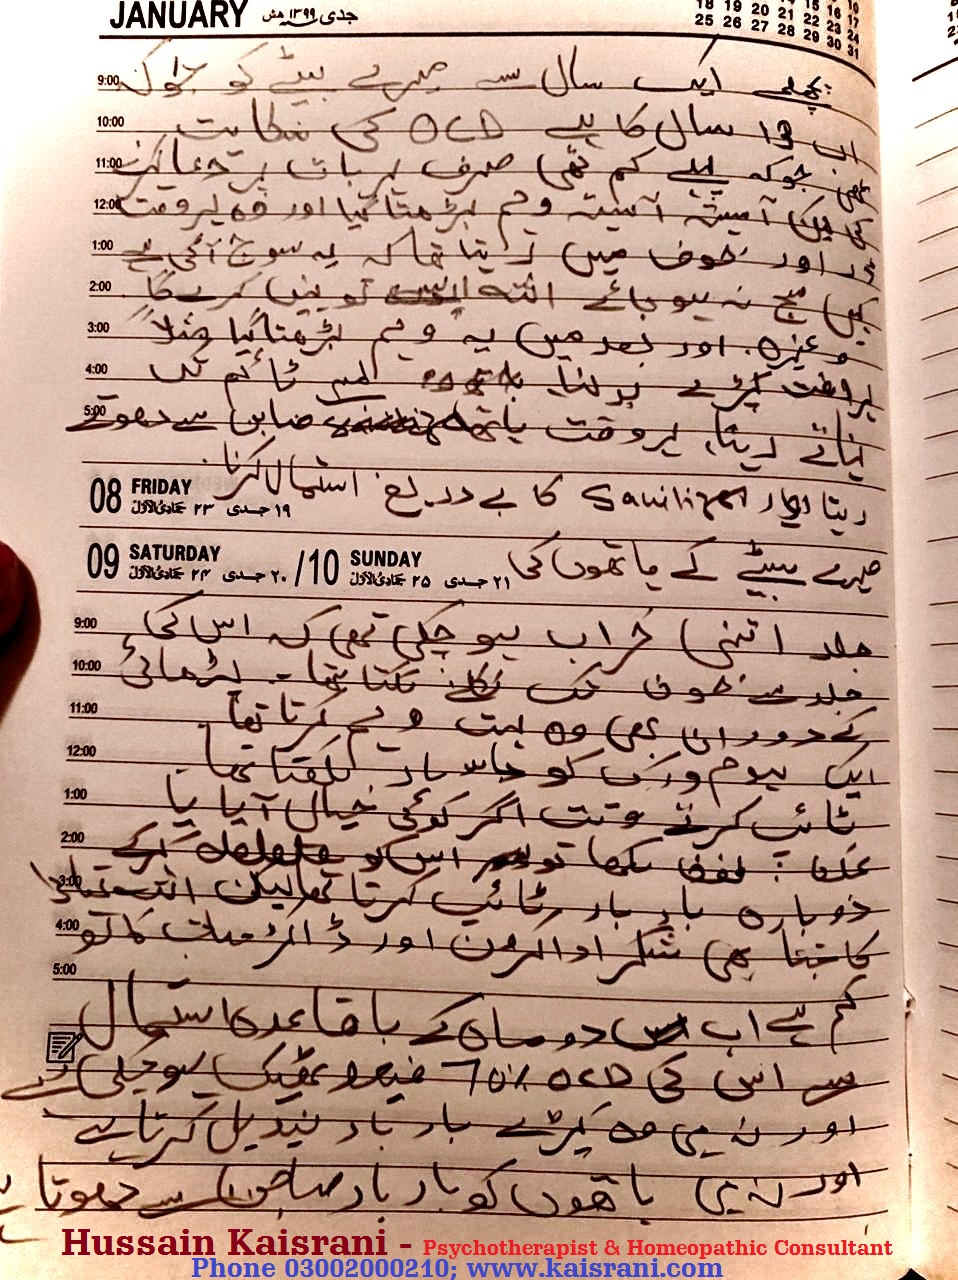 JANUARY جدی ۱۳۹۹ هش
18 19 20 21 22 23 24
25 26 27 28 29 30 31
9:00 پچھلے ایک سال سے میرے بیٹے کو جوکہ
10:00 اب 13 سال کا ہے OCD کی شکایت
11:00 تھی جوکہ پہلے کم تھی صرف ہر بات پر دعا کرنے
12:00 کی لیکن آہستہ آہستہ وہم بڑھتا گیا اور وہ ہروقت
1:00 ڈر اور خوف میں رہتا تھا کہ یہ سوچ آگئی ہے
2:00 کہیں سچ نہ ہوجائے اللہ ایسے تو نہیں کرے گا
3:00 وغیرہ. اور بعد میں یہ وہم بڑھتا گیا مثلاً
4:00 ہروقت کپڑے بدلنا لمبے ٹائم تک
5:00 نہاتے رہنا، ہروقت ہاتھ صابن سے دھوتے
رہنا اور کا بے دریغ استعمال کرنا.
08 FRIDAY
۱۹ جدی ۲۳ جمادی الاول
میرے بیٹے کے ہاتھوں کی
09 SATURDAY / 10 SUNDAY
۲۰ جدی ۲۴ جمادی الاول ۲۱ جدی ۲۵ جمادی الاول
9:00 جلد اتنی خراب ہوچکی تھی کہ اس کی
10:00 جلد سے خون تک نکلنے لگتا تھا۔ پڑھائی
11:00 کے دوران بھی وہ بہت وہم کرتا تھا
12:00 ایک ہوم ورک کو بار لکھتا تھا.
1:00 ٹائپ کرتے وقت اگر کوئی خیال آیا یا
2:00 غلط لفظ لکھا تو اس کو delete کرکے
3:00 دوبارہ بار بار ٹائپ کرتا تھا لیکن اللہ تعالیٰ
4:00 کا جتنا بھی شکر ادا کروں اور ڈاکٹر صاحب کا تو
5:00
کم ہے اب دو ماہ کے باقاعدہ استعمال
سے اس کی OCD 70% فیصد ٹھیک ہوچکی ہے
اور نہ ہی وہ کپڑے بار بار تبدیل کرتا ہے
اور نہ ہی ہاتھوں کو بار بار صابن سے دھوتا ہے
Hussain Kaisrani - Psychotherapist & Homeopathic Consultant
Phone 03002000210; www.kaisrani.com